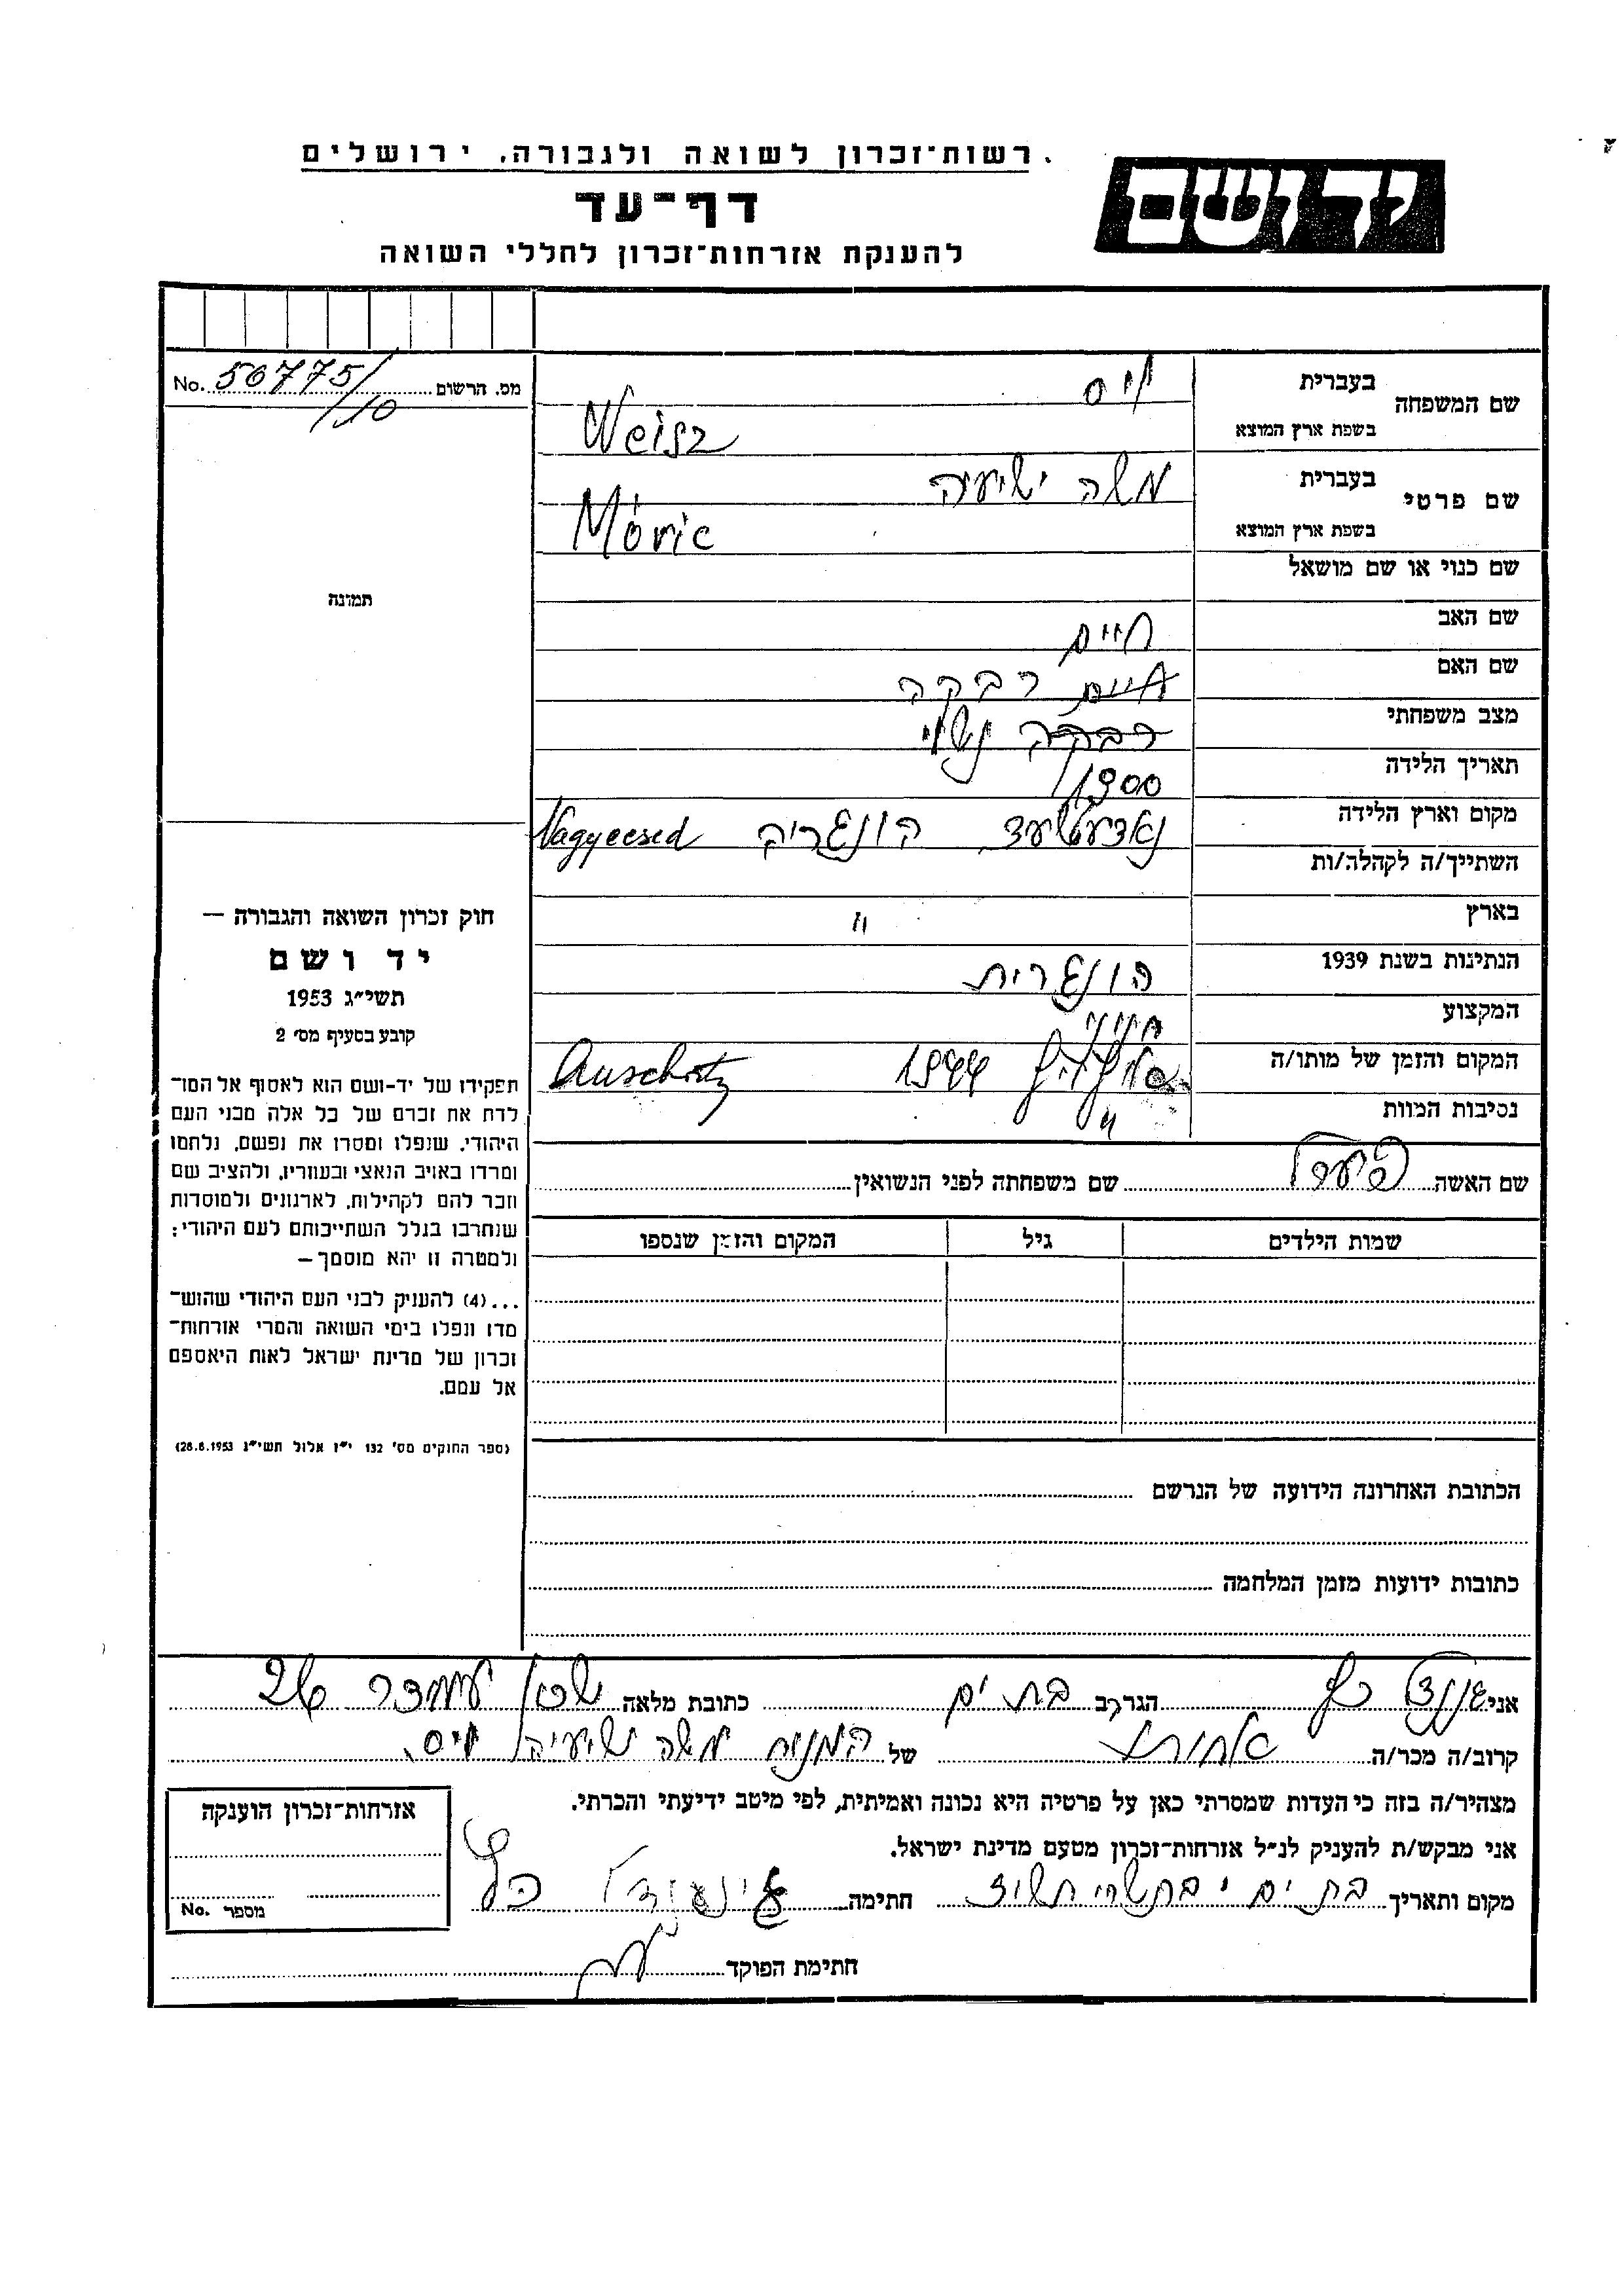 רשות־זכרון לשואה ולגבורה, ירושלים
יד ושם
דף־עד
להענקת אזרחות־זכרון לחללי השואה
מס. הרשום No. 56775/10
תמונה
חוק זכרון השואה והגבורה —
יד ושם
תשי״ג 1953
קובע בסעיף מס׳ 2
תפקידו של יד־ושם הוא לאסוף אל המו־
לדת את זכרם של כל אלה מבני העם
היהודי, שנפלו ומסרו את נפשם, נלחמו
ומרדו באויב הנאצי ובעוזריו, ולהציב שם
וזכר להם לקהילות, לארגונים ולמוסדות
שנחרבו בגלל השתייכותם לעם היהודי;
ולמטרה זו יהא מוסמך—
...(4) להעניק לבני העם היהודי שהוש־
מדו ונפלו בימי השואה והמרי אזרחות־
זכרון של מדינת ישראל לאות היאספם
אל עמם.
(ספר החוקים מס׳ 132 י״ז אלול תשי״ג 28.8.1953)
שם המשפחה בעברית וויס
בשפת ארץ המוצא Weisz
שם פרטי בעברית משה ישעיה
בשפת ארץ המוצא Móric
שם כנוי או שם מושאל
שם האב חיים
שם האם חיים רבקה
מצב משפחתי רבקה נשוי
תאריך הלידה 1900
מקום וארץ הלידה הונגריה Nagyecsed
השתייך/ה לקהלה/ות
בארץ "
הנתינות בשנת 1939 הונגרית
המקצוע
המקום והזמן של מותו/ה 1944 Auschvitz
נסיבות המוות "
שם האשה שם משפחתה לפני הנשואין
שמות הילדים גיל המקום והזמן שנספו
הכתובת האחרונה הידועה של הנרשם
כתובות ידועות מזמן המלחמה
אני כץ הגר/ב בת ים כתובת מלאה 26
קרוב/ה מכר/ה אחותו של המנוח משה ישעיה וויס.
מצהיר/ה בזה כי העדות שמסרתי כאן על פרטיה היא נכונה ואמיתית, לפי מיטב ידיעתי והכרתי.
אני מבקש/ת להעניק לנ״ל אזרחות־זכרון מטעם מדינת ישראל.
מקום ותאריך בת ים חתימה כץ
חתימת הפוקד
אזרחות־זכרון הוענקה
מספר No.